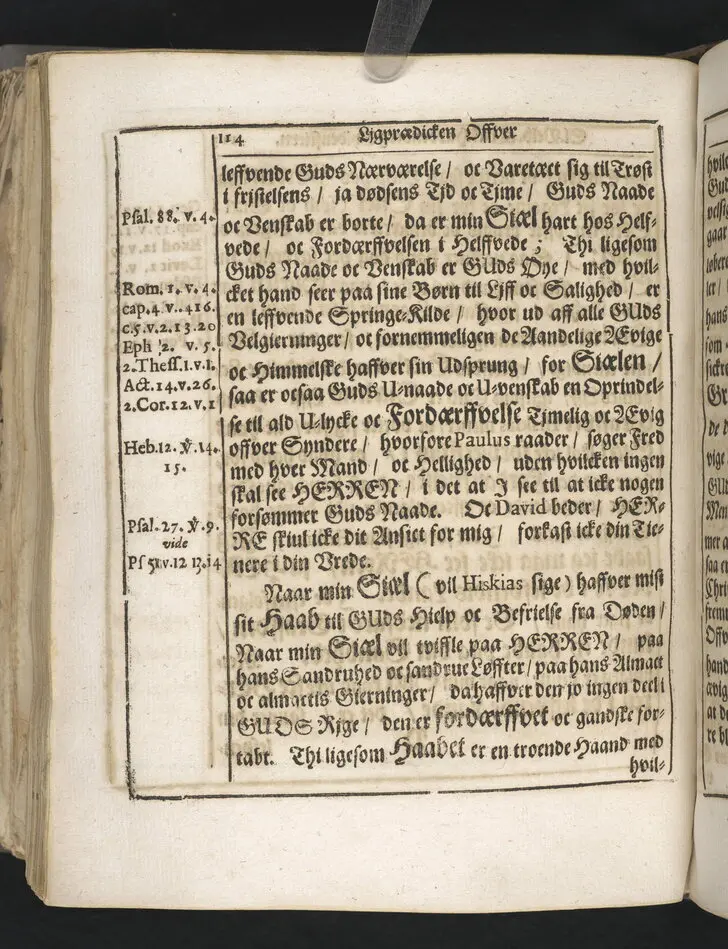 114 Ligprædicken Offver
leffvende Guds Nærværelse / oc Varetæct sig til Trøst
i fristelsens / ja dødsens Tjd oc Tjme / Guds Naade
Psal. 88. v. 4.
oc Venskab er borte / da er min Siæl hart hos Helf-
vede / oc Fordærffvelsen i Helffvede ; Thi ligesom
Guds Naade oc Venskab er GUds Øye / med hvil-
Rom. 1. v. 4.
cket hand seer paa sine Børn til Ljff oc Salighed / er
cap. 4 v. 416.
en leffvende Springe-Kilde / hvor ud aff alle GUds
c. 5. v. 2. 13. 20
Eph 2. v. 5.
Velgierninger / oc fornemmeligen de Aandelige Ævige
2. Thess. 1. v. 1.
oc Himmelske haffver sin Udsprung / for Siælen /
Act. 14. v. 26.
saa er ocsaa Guds U-naade oc U-venskab en Oprindel-
2. Cor. 12. v. 1
se til ald U-lycke oc Fordærffvelse Tjmelig oc Ævig
Heb. 12. V. 14.
offver Syndere / hvorfore Paulus raader / søger Fred
15.
med hver Mand / oc Hellighed / uden hvilcken ingen
skal see HERREN / i det at I see til at icke nogen
forsømmer Guds Naade. Oc David beder / HER-
Psal. 27. V. 9.
RE skiul icke dit Ansict for mig / forkast icke din Tie-
vide
Ps 51. v. 12 13. 14
nere i din Vrede.
Naar min Siæl ( vil Hiskias sige ) haffver mist
sit Haab til GUds Hielp oc Befrielse fra Døden /
Naar min Siæl vil tviffle paa HERREN / paa
hans Sandruhed oc sandrue Løffter / paa hans Almact
oc almactis Gierninger / da haffver den jo ingen deel i
GUDS Rjge / den er fordærffvet oc gandske for-
tabt. Thi ligesom Haabet er en troende Haand med
hvil-